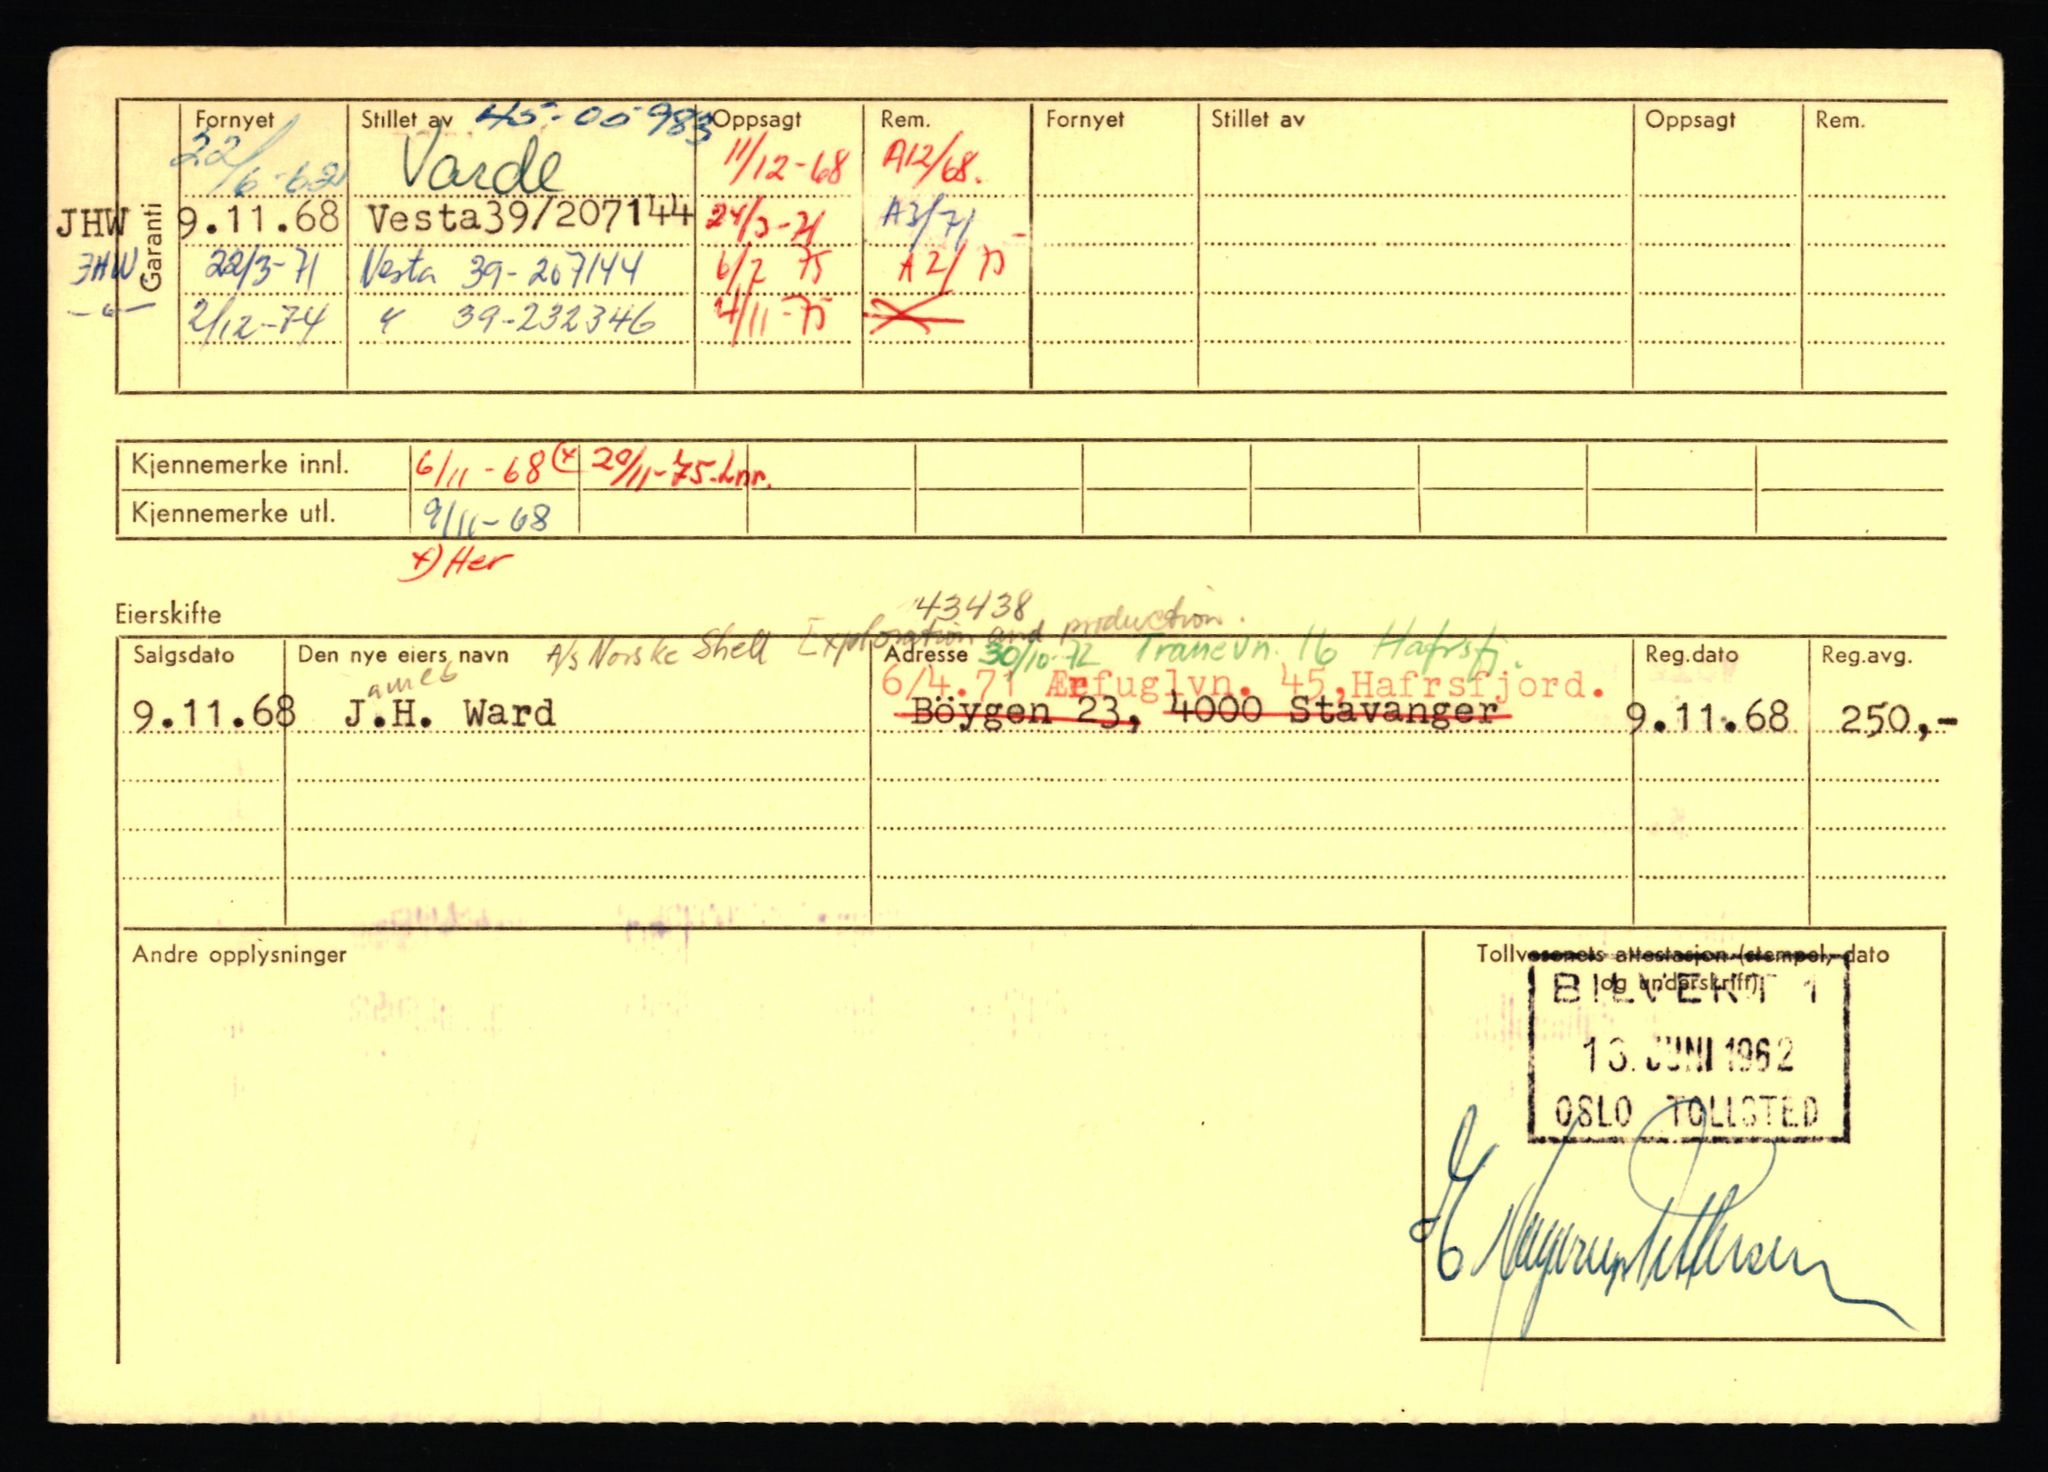 Fornyet Stillet av 45-00983 Oppsagt Rem. Fornyet Stillet av Oppsagt Rem.
Garanti
22/6-62 Varde 11/12-68 A12/68.
JHW 9.11.68 Vesta39/207144 24/3-71 A3/71
JHW 22/3-71 Vesta 39-207144 6/2 75 A2/75
-"- 2/12-74 " 39-232346 4/11-75
Kjennemerke innl. 6/11-68 (x 20/11-75-Lnr.
Kjennemerke utl. 9/11-68
x) Her
43438
Eierskifte
A/s Norske Shell Exploration and production.
Salgsdato Den nye eiers navn Adresse 30/10-72 Tranevn. 16 Hafrsfj. Reg.dato Reg.avg.
ames 6/4.71 Ærfuglvn. 45,Hafrsfjord.
9.11.68 J.H. Ward Böygen 23, 4000 Stavanger 9.11.68 250,-
Andre opplysninger
Tollvesenets attestasjon (stempel, dato
og underskrift)
BILVERT 1
13. JUNI 1962
OSLO TOLLSTED